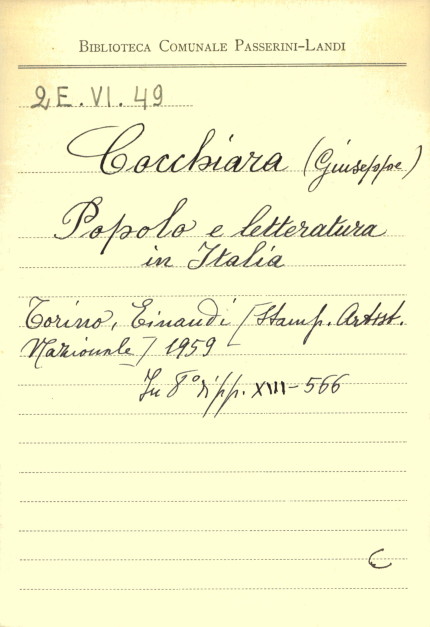 BIBLIOTECA COMUNALE PASSERINI-LANDI
2E.VI.49
Cocchiara (Giuseppe)
Popolo e letteratura
in Italia
Torino, Einaudi [Stamp. Artist.
Nazionale] 1959
In 8° di pp. XIII-566
C